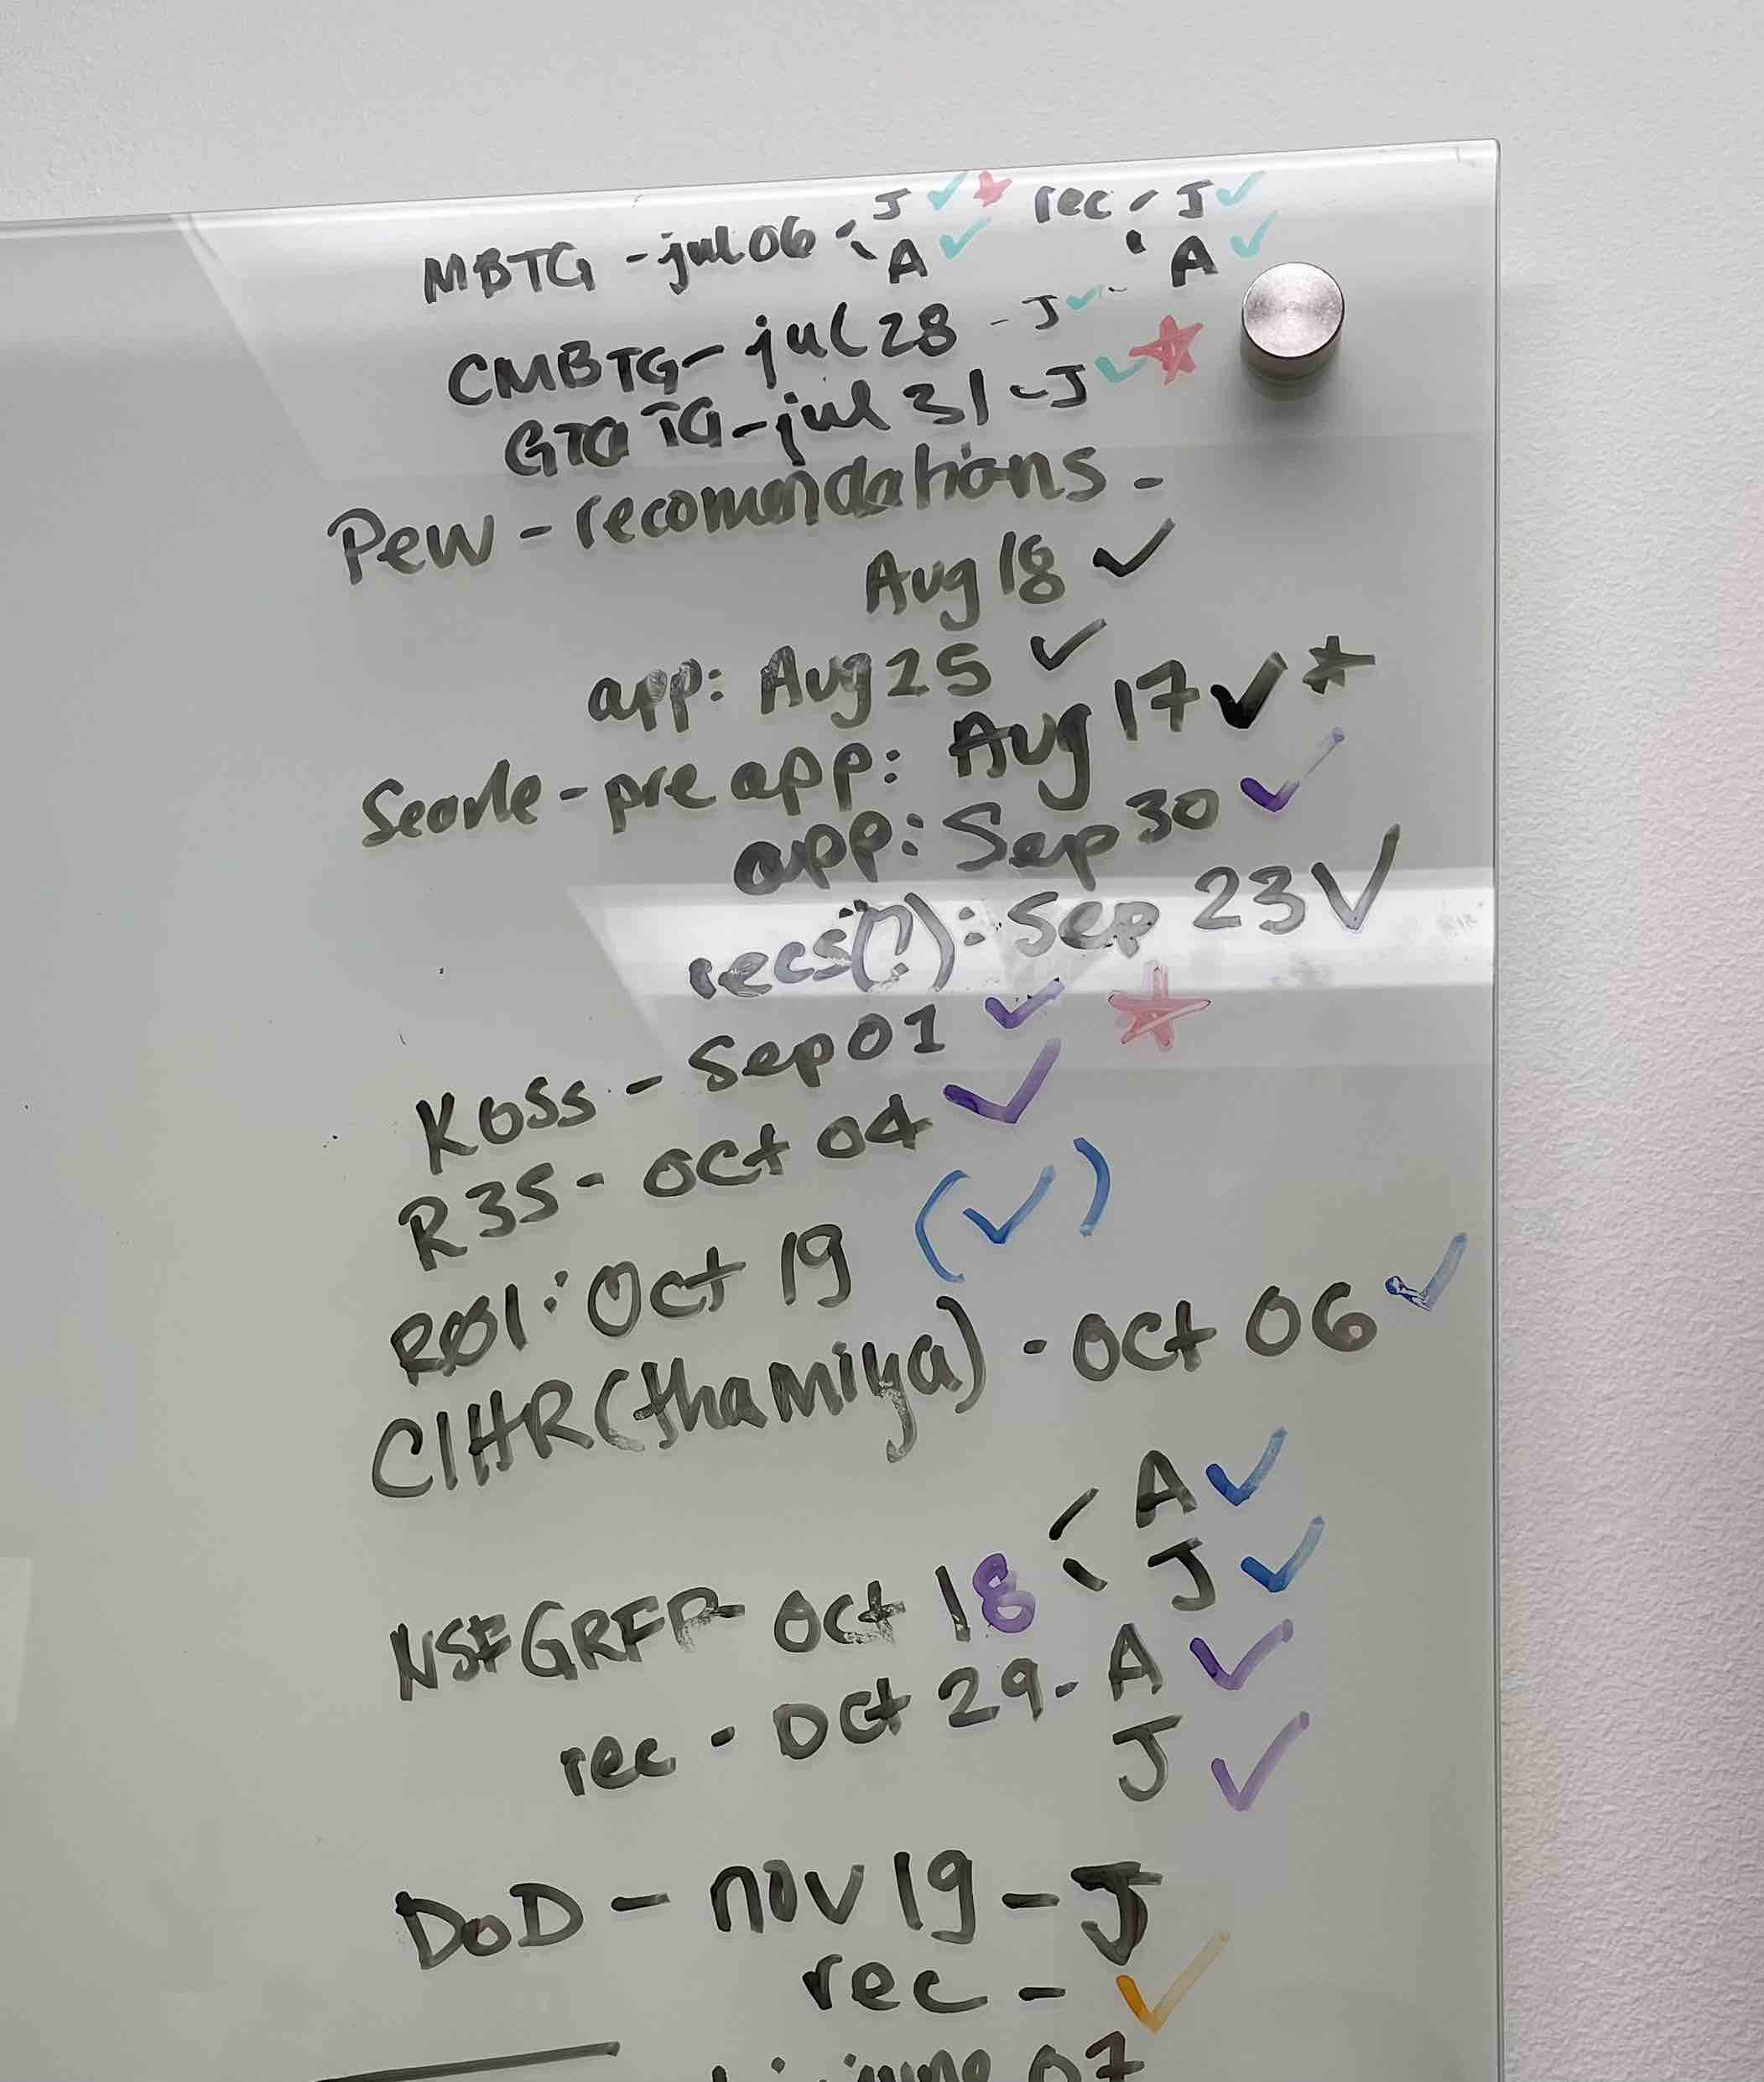 J ✓ ★ rec - J ✓
MBTG - jul 06 - A ✓ A ✓
CMBTG - jul 28 - J ✓
GTG TG - jul 31 - J ✓ ★
Pew - recomendations -
Aug 18 ✓
app: Aug 25 ✓
Searle - pre app: Aug 17 ✓ ★
app: Sep 30 ✓
recs(?): Sep 23 ✓
Koss - Sep 01 ✓ ★
R35 - Oct 04 ✓
R01: Oct 19 (✓)
CIHR (thamiya) - Oct 06 ✓
A ✓
NSF GRFP - Oct 18 J ✓
rec - Oct 29 - A ✓
J ✓
DoD - nov 19 - J
rec - ✓
07